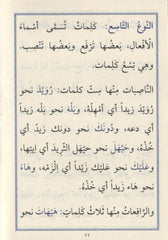 النَّوعُ التَّاسِعِ: كَلِمَاتٌ تُسَمَّى أَسْمَاءَ
الْأَفْعَالِ، بَعْضُهَا تَرْفَعُ وَبَعْضُهَا تَنْصِبُ.
وَهِيَ تِسْعُ كَلِمَاتٍ.
النَّاصِبَاتُ مِنْهَا سِتُّ كَلِمَاتٍ: رُوَيْدَ نحو
رُوَيْدَ زَيْداً أَي أَمْهِلْهُ، وَبَلْهَ نحو بَلْهَ زيداً
أي دَعْهُ، وَدُونَكَ نحو دونك زيداً أي
خُذْهُ، وَحَيَّهَلَ نحو حَيَّهَلَ الثَّرِيدَ أي إيتِهَا،
وَعَلَيْكَ نحو عَلَيْكَ زَيْداً أي الْزَمْهُ، وَهَاءَ
نحو هَاءَ زيداً أي خُذْهُ.
وَالرَّافِعَاتُ مِنْهَا ثَلَاثُ كَلِمَاتٍ: هَيْهَاتَ نحو